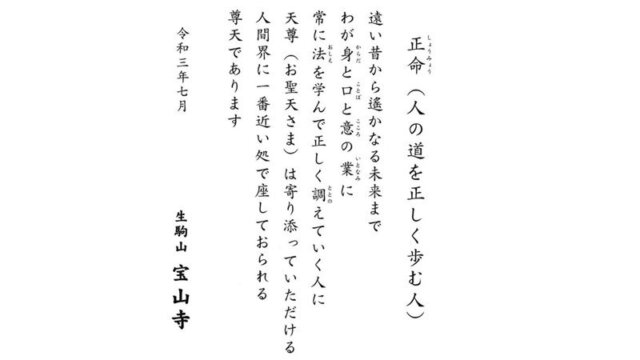 正命（人の道を正しく歩む人）
しょうみょう
遠い昔から遙かなる未来まで
わが身と口と意の業に
からだ ことば こころ いとなみ
常に法を学んで正しく調えていく人に
おしえ ととの
天尊（お聖天さま）は寄り添っていただける
人間界に一番近い処で座しておられる
尊天であります
令和三年七月
生駒山 宝山寺